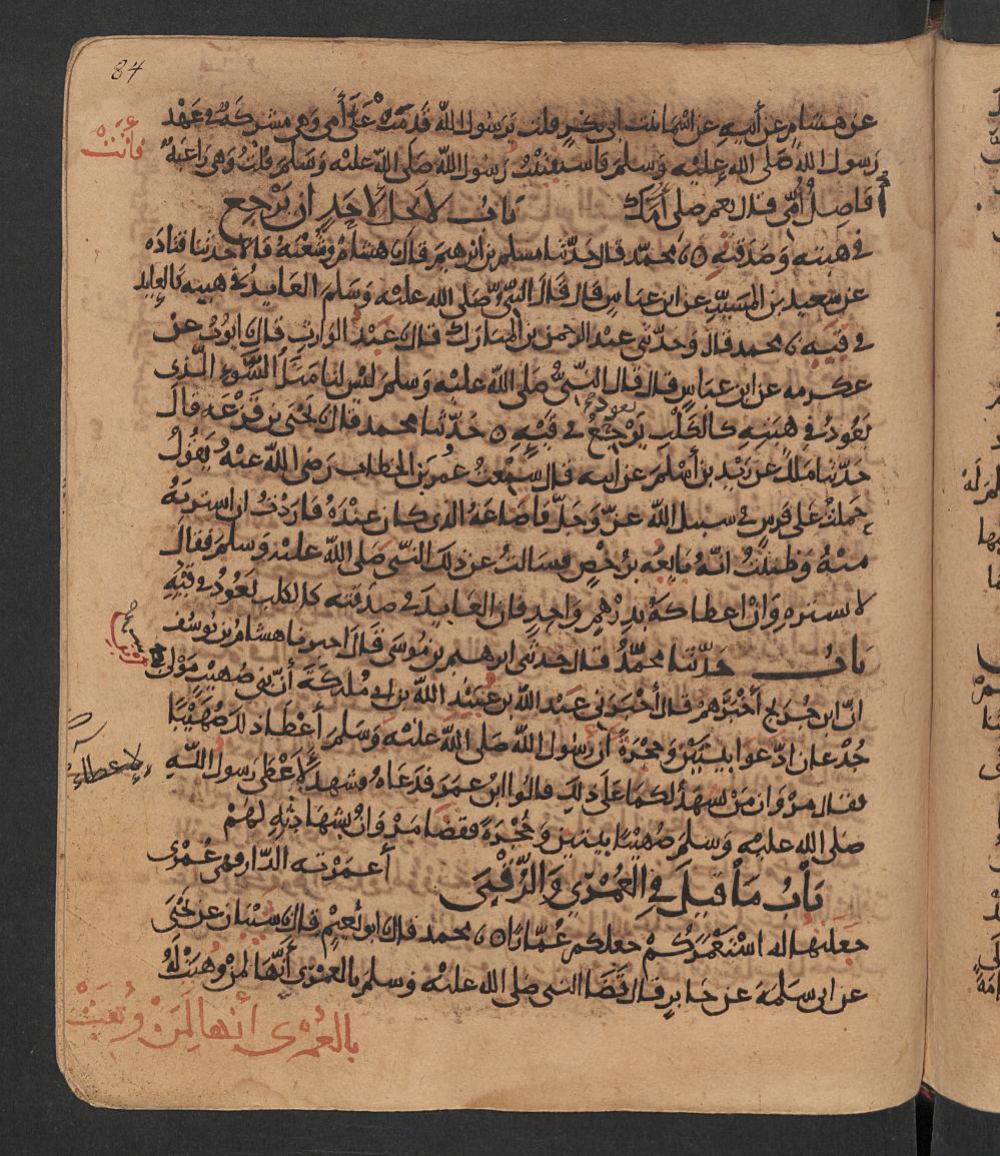 84
عن هشام عن أبيه عن اسما بنت ابى بكر قلت يرسول الله قدمت علىّ أمى وهى مشركة فى عهد
رسول الله صلى الله عليه وسلم فاستفتيت رسول الله صلى الله عليه وسلم قلت وهى راغبة
أفاصل أمى قال نعم صلى أمك باب لا يحل لأحد أن يرجع
فى هبته وصدقته محمد قال حدثنا مسلم بن ابرهيم قال هشام وشعبة قالا حدثنا قتاده
عن سعيد بن المسيب عن ابن عباس قال قال النبى صلى الله عليه وسلم العايد فى هبته كالعايد
فى قيه محمد قال وحدثنى عبد الرحمن بن المبارك قال عبد الوارث قال ايوب عن
عكرمه عن ابن عباس قال قال النبى صلى الله عليه وسلم ليس لنا مثل السوء الذى
يعود فى هبته كالكلب يرجع فى قيه حدثنا محمد قال يحيى بن قزعه قال
حدثنا ملك عن زيد بن أسلم عن ابيه قال سمعت عمر بن الخطاب رضى الله عنه يقول
حملت على فرس فى سبيل الله عز وجل فاضاعه الذى كان عنده فاردت ان استريه
منه وظننت انه بايعه برخص فسالت عن ذلك النبى صلى الله عليه وسلم فقال
لا تستره وان اعطاكه بدرهم واحد فان العايد فى صدقته كالكلب يعود فى قيه
باب حدثنا محمد قال حدثنى ابرهيم بن موسى قال اخبرنا هشام بن يوسف
ان ابن جريج أخبرهم قال أخبرنى عبد الله بن عبيد الله بن ابى مليكة أن بنى صهيب مولى
جدعان ادعوا بيتين وحجرة أن رسول الله صلى الله عليه وسلم أعطا ذلك صهيبا
فقال مروان من يشهد لكما على ذلك قالوا ابن عمر فدعاه فشهد لأعطى رسول الله
صلى الله عليه وسلم صهيبا بيتين وحجرة فقضا مروان بشهادته لهم
باب ما قيل فى العمرى والرقبى أعمرته الدار فهى عمرى
جعلتها له استعمركم جعلكم عمارا محمد قال ابو نعيم قال شيبان عن يحيى
عن ابى سلمة عن جابر قال قضا النبى صلى الله عليه وسلم بالعمرى أنها لمن وهبت له
بالعمرى أنها لمن وهبت
لاعطاء